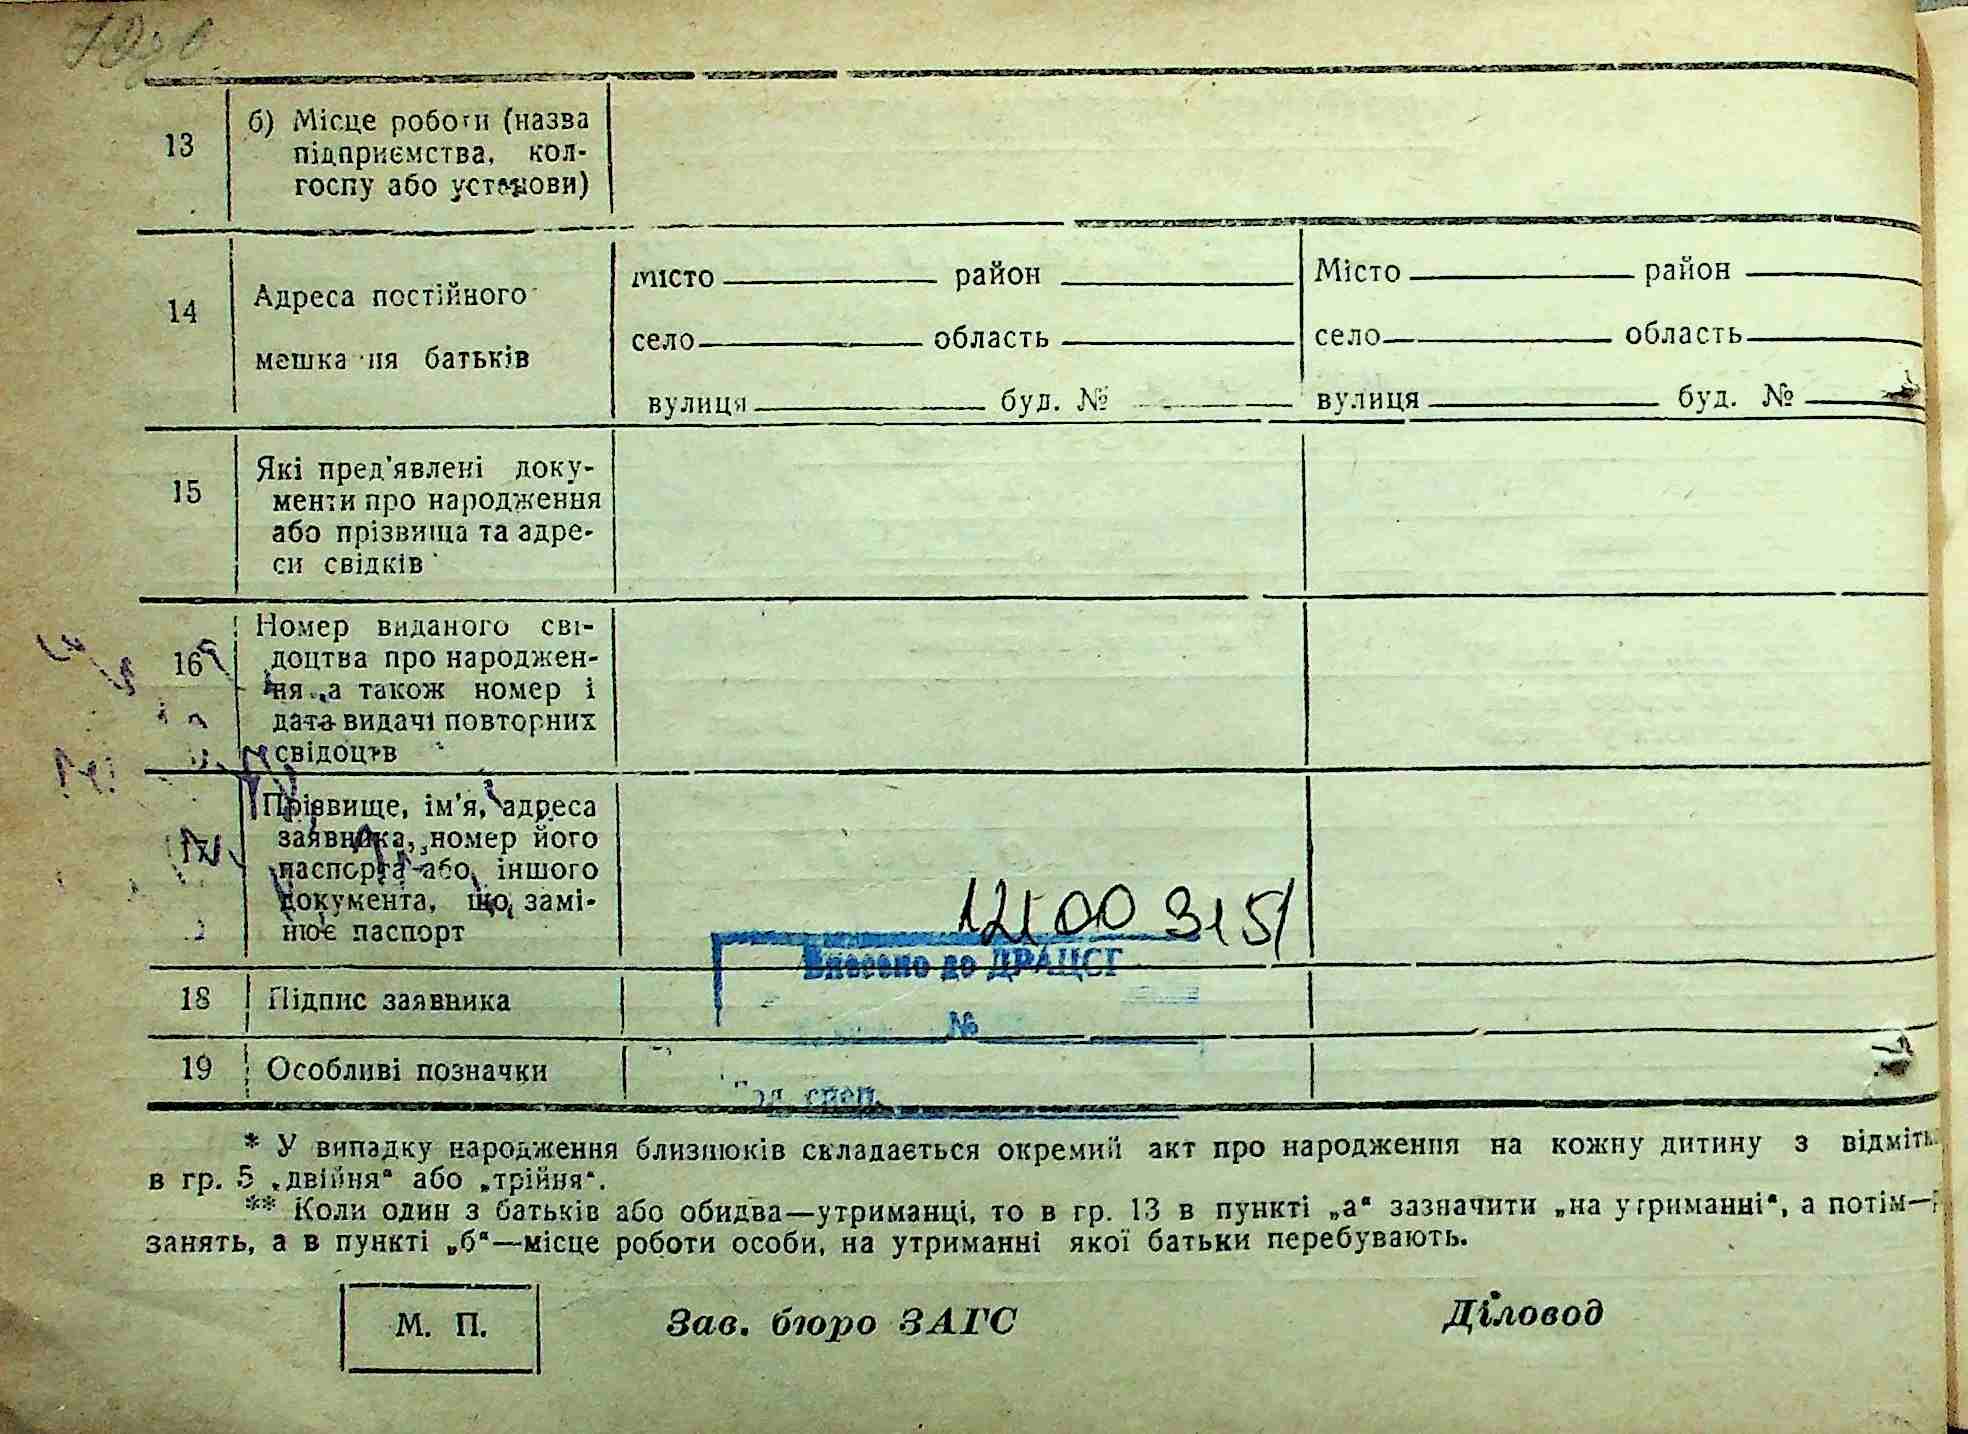 13
б) Місце роботи (назва
підприємства, кол-
госпу або установи)
14
Адреса постійного
мешка ня батьків
місто район
село область
вулиця буд. №
Місто район
село область
вулиця буд. №
15
Які пред'явлені доку-
менти про народження
або прізвища та адре-
си свідків
16
Номер виданого сві-
доцтва про народжен-
ня, а також номер і
дата видачі повторних
свідоцтв
17
Прізвище, ім'я, адреса
заявника, номер його
паспорта або іншого
документа, що замі-
нює паспорт
Внесено до ДРАЦСГ
№
18
Підпис заявника
19
Особливі позначки
спец.
* У випадку народження близнюків складається окремий акт про народження на кожну дитину з відмітк
в гр. 5 „двійня“ або „трійня“.
** Коли один з батьків або обидва—утриманці, то в гр. 13 в пункті „а“ зазначити „на утриманні“, а потім—
занять, а в пункті „б“—місце роботи особи, на утриманні якої батьки перебувають.
М. П.
Зав. бюро ЗАГС
Діловод